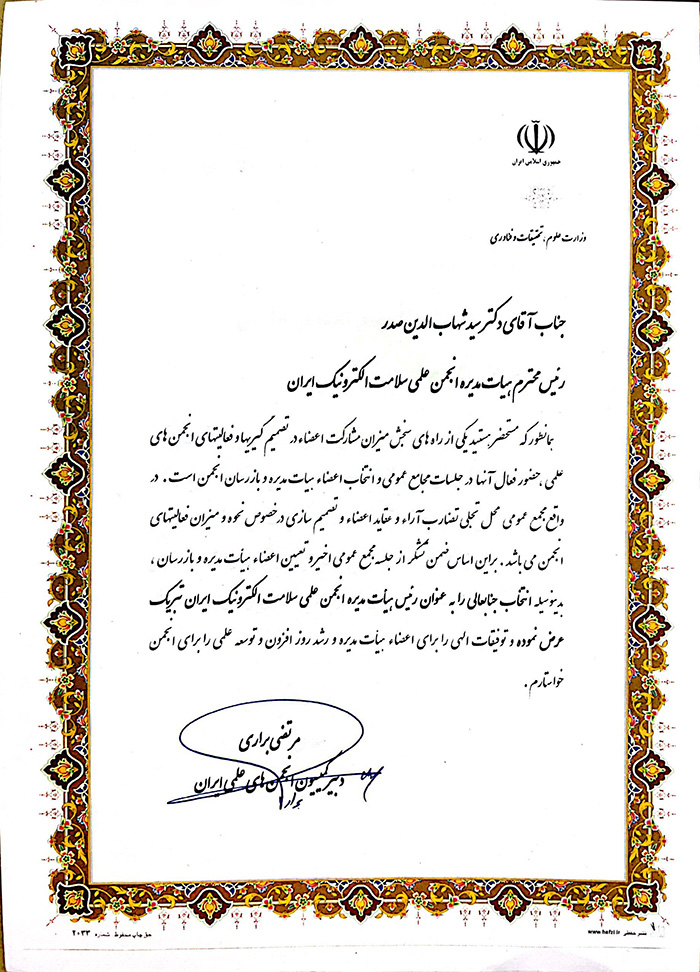 جمهوری اسلامی ایران
وزارت علوم، تحقیقات و فناوری
جناب آقای دکتر سید شهاب الدین صدر
رئیس محترم هیات مدیره انجمن علمی سلامت الکترونیک ایران
همانطور که مستحضر هستید یکی از راه های سنجش میزان مشارکت اعضاء در تصمیم گیریها و فعالیتهای انجمن های
علمی ، حضور فعال آنها در جلسات مجامع عمومی و انتخاب اعضاء هیات مدیره و بازرسان انجمن است . در
واقع مجمع عمومی محل تجلی تضارب آراء و عقاید اعضاء و تصمیم سازی در خصوص نحوه و میزان فعالیتهای
انجمن می باشد . براین اساس ضمن تشکر از جلسه مجمع عمومی اخیر و تعیین اعضاء هیأت مدیره و بازرسان ،
بدینوسیله انتخاب جنابعالی را به عنوان رئیس هیأت مدیره انجمن علمی سلامت الکترونیک ایران تبریک
عرض نموده و توفیقات الهی را برای اعضاء هیأت مدیره و رشد روز افزون و توسعه علمی را برای انجمن
خواستارم .
مرتضی براری
دبیر کمیسیون انجمن های علمی ایران
حق چاپ محفوظ شماره ۲۰۳۳
www.hafzi.ir